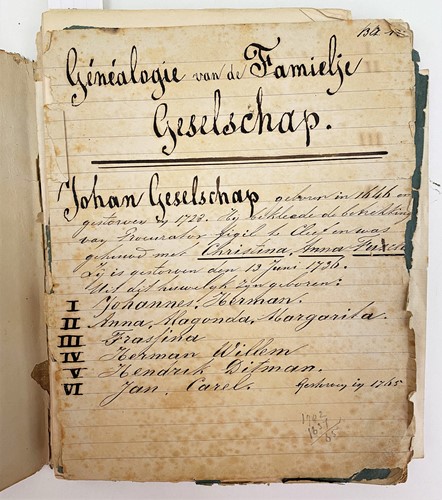 Généalogie van de Famielje
Geselschap.
Johan Geselschap geboren in 1646 en
gestorven in 1723. Hij bekleede de betrekking
van Procurator figil te Cleef en was
gehuwd met Christina, Anna
Zij is gestorven den 13 Juni 1736.
Uit dit huwelijk zijn geboren:
I Johannes, Herman.
II Anna, Alagonda, Margarita.
III Frassina
IV Herman Willem
V Hendrik Ditman.
VI Jan, Carel. Gestorven in 1765